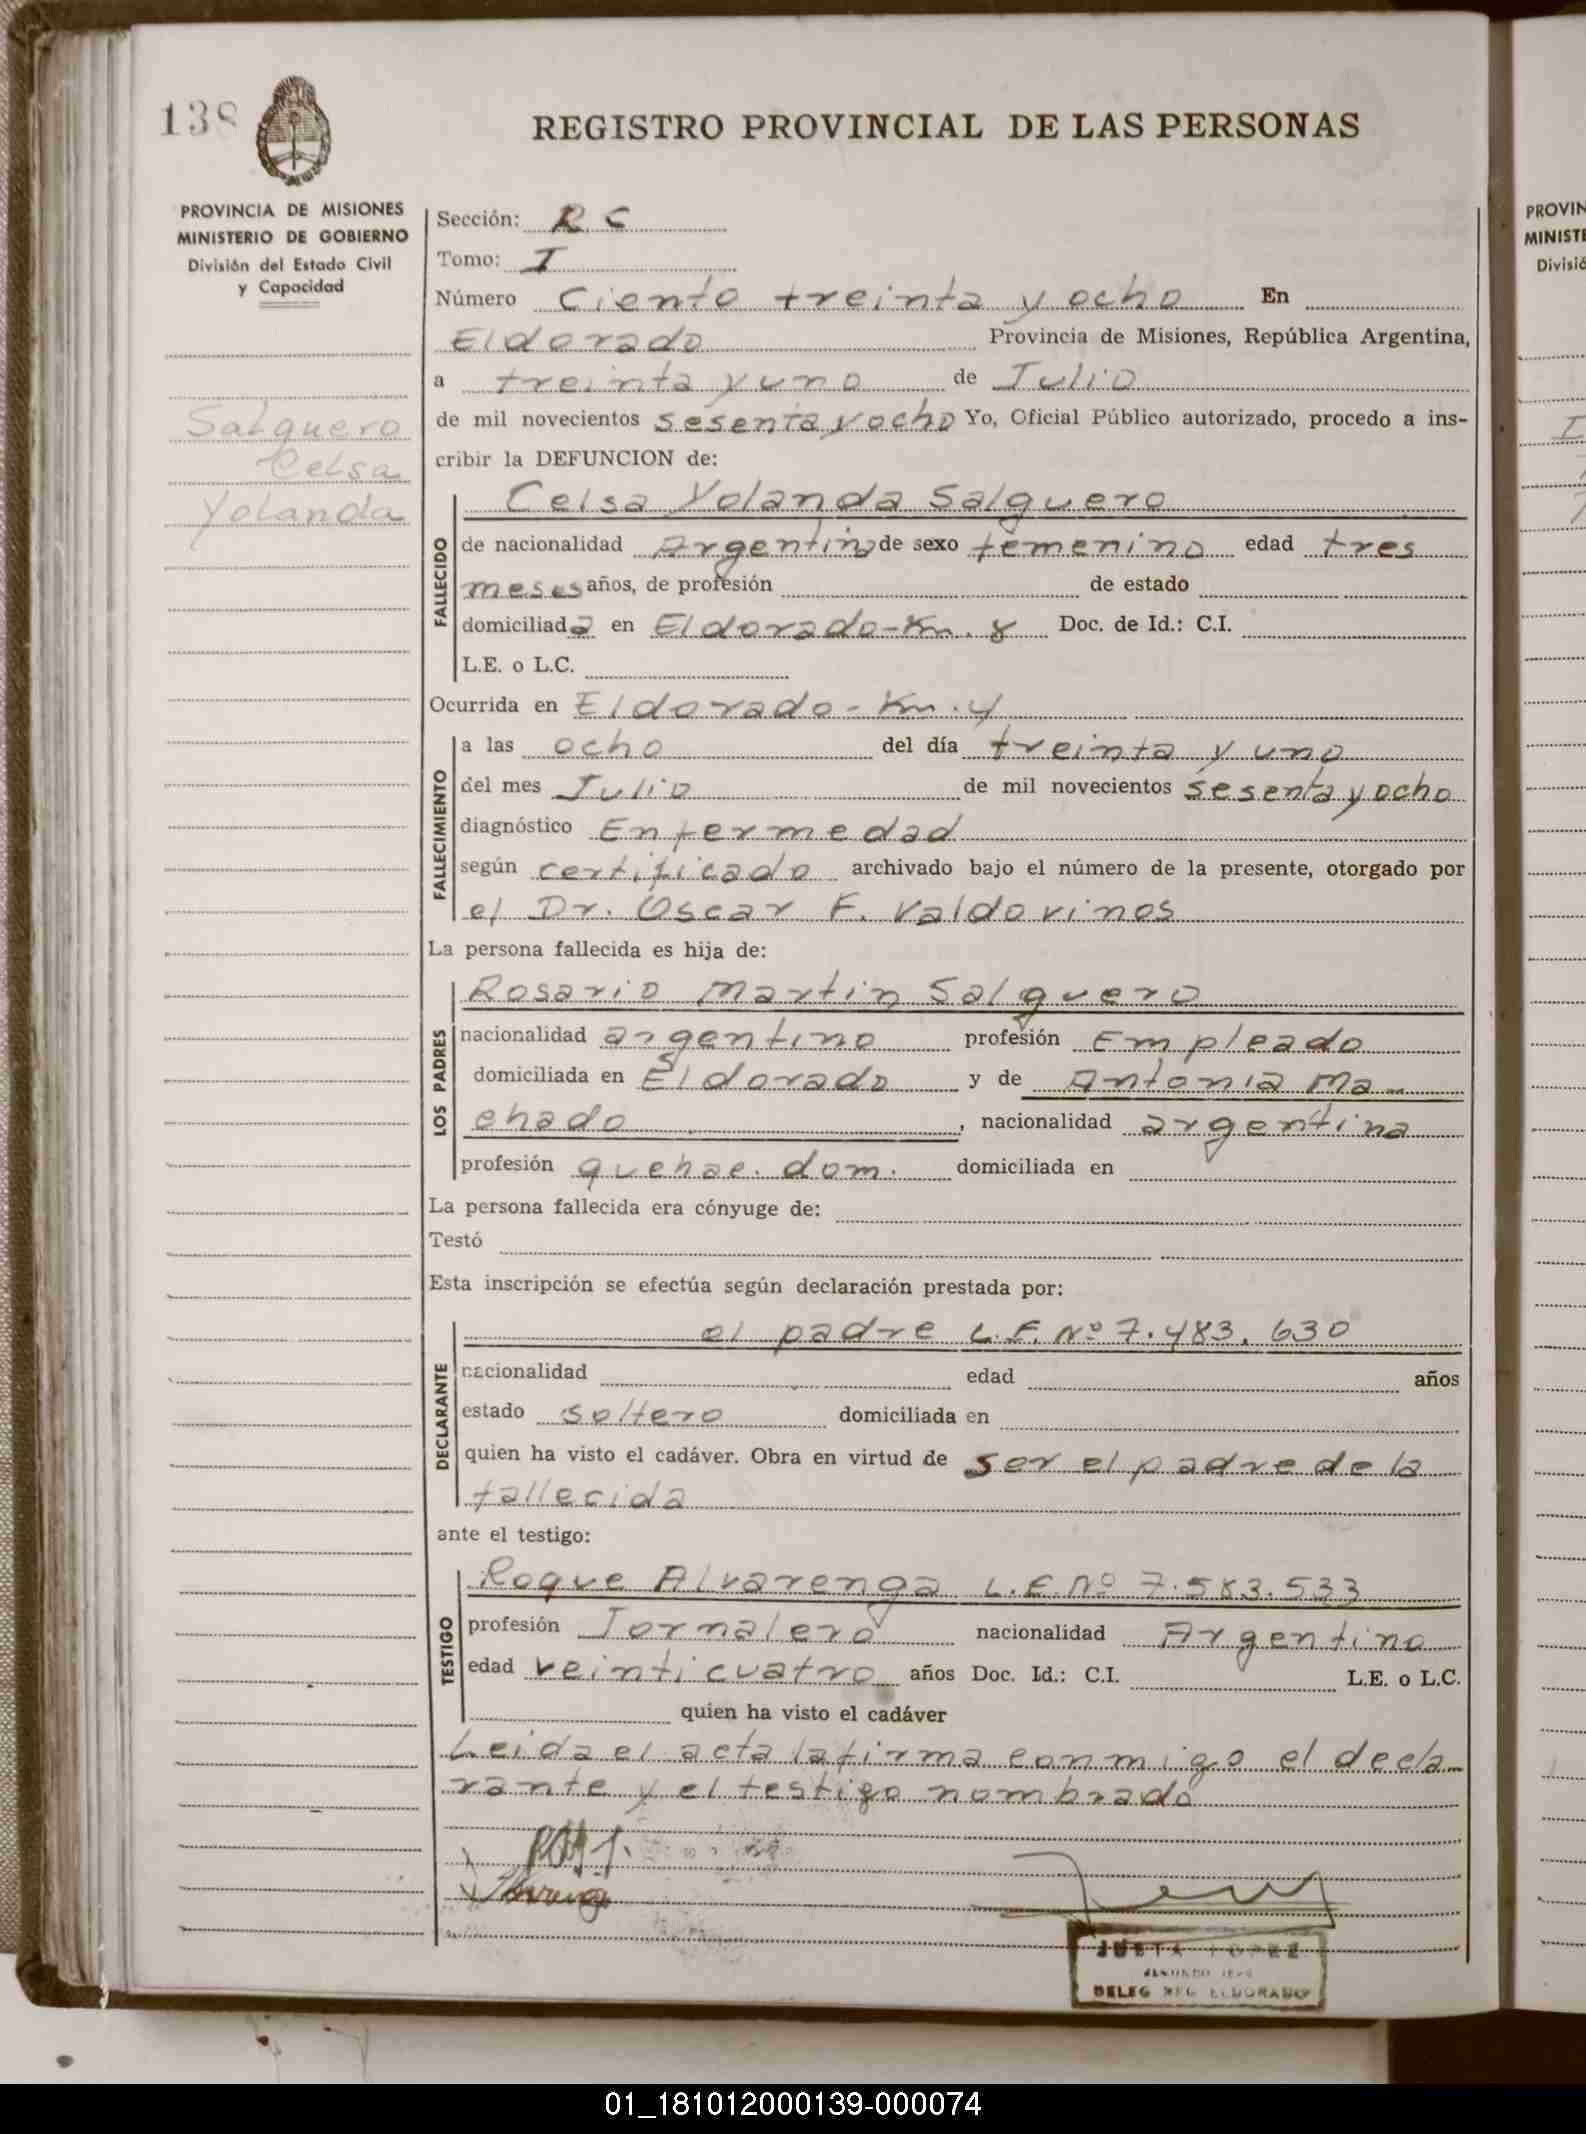 138
REGISTRO PROVINCIAL DE LAS PERSONAS
PROVINCIA DE MISIONES
MINISTERIO DE GOBIERNO
División del Estado Civil
y Capacidad
Salguero
Celsa
Yolanda
Sección: R C
Tomo: I
Número Ciento treinta y ocho En
Eldorado Provincia de Misiones, República Argentina,
a treinta y uno de Julio
de mil novecientos sesenta y ocho Yo, Oficial Público autorizado, procedo a ins-
cribir la DEFUNCION de:
FALLECIDO
Celsa Yolanda Salguero
de nacionalidad Argentina de sexo femenino edad tres
meses años, de profesión de estado
domiciliada en Eldorado-Km. 8 Doc. de Id.: C.I.
L.E. o L.C.
Ocurrida en Eldorado - Km. 4
FALLECIMIENTO
a las ocho del día treinta y uno
del mes Julio de mil novecientos sesenta y ocho
diagnóstico Enfermedad
según certificado archivado bajo el número de la presente, otorgado por
el Dr. Oscar F. Valdovinos
La persona fallecida es hija de:
LOS PADRES
Rosario Martin Salguero
nacionalidad argentino profesión Empleado
domiciliada en Eldorado y de Antonia Ma-
chado, nacionalidad argentina
profesión quehac. dom. domiciliada en
La persona fallecida era cónyuge de:
Testó
Esta inscripción se efectúa según declaración prestada por:
DECLARANTE
el padre L.E. Nº 7.483.630
nacionalidad edad años
estado soltero domiciliada en
quien ha visto el cadáver. Obra en virtud de ser el padre de la
fallecida
ante el testigo:
TESTIGO
Roque Alvarenga L.E. Nº 7.583.533
profesión Jornalero nacionalidad Argentino
edad veinticuatro años Doc. Id.: C.I. L.E. o L.C.
quien ha visto el cadáver
Leida el acta la firma conmigo el decla-
rante y el testigo nombrado
LOPEZ
DELEG REG ELDORADO
PROVIN
MINISTE
Divisió
01_181012000139-000074